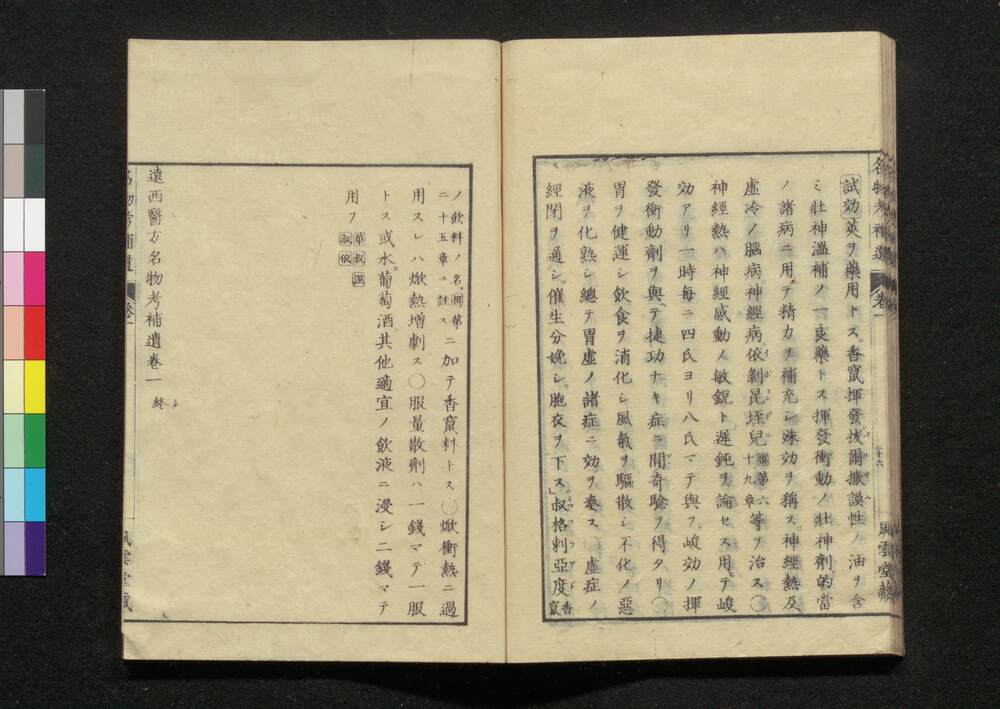 名物考補遺 卷一 三十六 風雲堂藏
試効 莢ヲ藥用トス。香竄揮發拔爾撒謨性ノ油ヲ含
ミ壯神溫補ノ一良藥トス揮發衝動ノ壯神劑的當
ノ諸病ニ用テ精力ヲ補充シ殊効ヲ稱ス。神經熱及
虛冷ノ腦病。神經病依剝昆垤兒 第六十九章 等ヲ治ス〇
神經熱ハ神經感動ノ敏銳ト遲鈍ヲ論セス用テ峻
効アリ一時每ニ四氏ヨリ八氏マテ與フ。峻効ノ揮
發衝動劑ヲ與テ捷功ナキ症ニ間奇驗ヲ得タリ〇
胃ヲ健運シ飲食ヲ消化シ風氣ヲ驅散シ不化ノ惡
液ヲ化熟シ總テ胃虛ノ諸症ニ効ヲ奏ス〇虛症ノ
經閉ヲ通シ。催生分娩シ。胞衣ヲ下ス。叔格剌亞度 香竄
ノ飲料ノ名、第二十五章ニ註ス ニ加テ香竄料トス〇焮衝熱ニ過
用スレハ焮熱增劇ス〇服量散劑ハ一錢マテ一服
トス或水。葡萄酒其他適宜ノ飲液ニ浸シ二錢マテ
用フ
遠西醫方名物考補遺卷一 終
名物考補遺 卷一 風雲堂藏